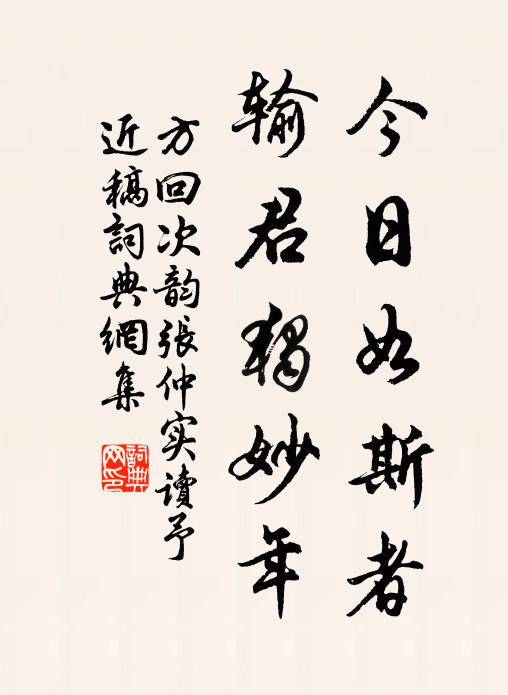 今日如斯者
输君独妙年
方回次韵張仲实讀予
近稿詞典網集
詞典网印